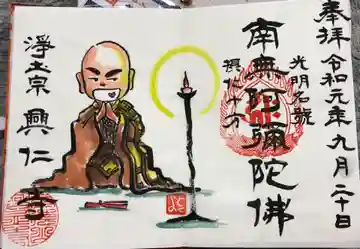 奉拝 令和元年九月二十日
光明名號
摂化十方
南無阿彌陀佛
浄土宗 興仁寺